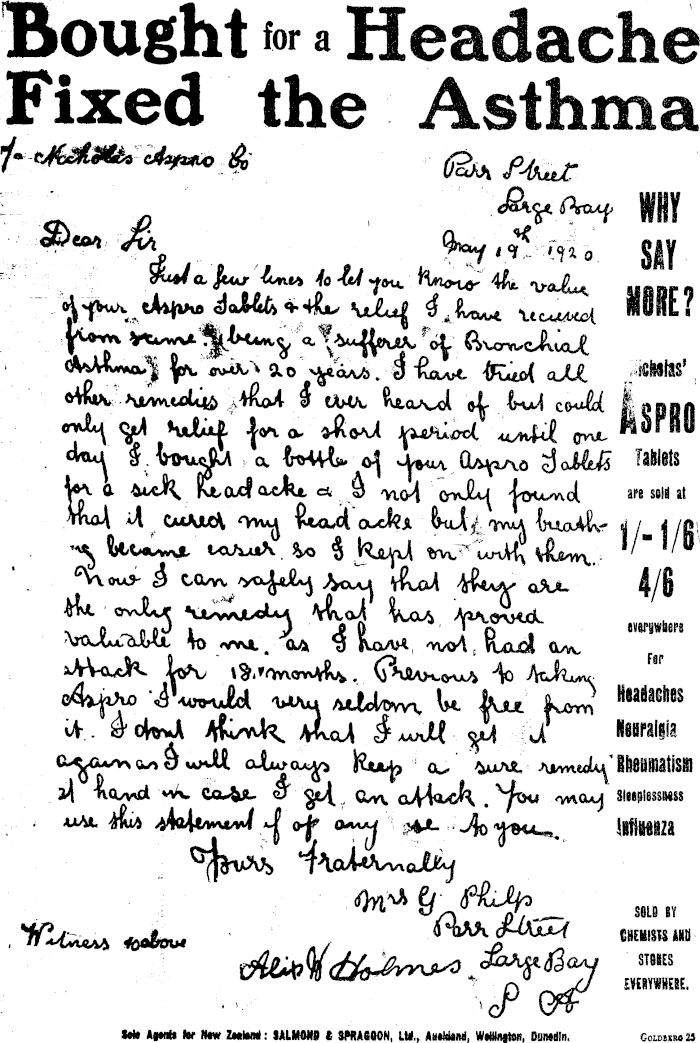 Bought for a Headache
Fixed the Asthma
To Nicholas Aspro Co
Parr Street
Large Bay
May 19th 1920
Dear Sir
Just a few lines to let you know the value
of your Aspro Tablets & the relief I have recieved
from same. being a sufferer of Bronchial
Asthma for over 20 years. I have tried all
other remedies that I ever heard of but could
only get relief for a short period until one
day I bought a bottle of your Aspro Tablets
for a sick headacke & I not only found
that it cured my head acke but my breath-
ing became easier so I kept on with them.
Now I can safely say that they are
the only remedy that has proved
valuable to me. as I have not had an
attack for 18 months. Previous to taking
Aspro I would very seldom be free from
it. I dont think that I will get it
again as I will always keep a sure remedy
at hand in case I get an attack. You may
use this statement if of any use to you.
Yours Fraternally
Mrs G Philp
Parr Street
Large Bay
S A
Witness above
Alix W Holmes
WHY
SAY
MORE?
Nicholas'
ASPRO
Tablets
are sold at
1/- 1/6
4/6
everywhere
For
Headaches
Neuralgia
Rheumatism
Sleeplessness
Influenza
SOLD BY
CHEMISTS AND
STORES
EVERYWHERE.
Sole Agents for New Zealand: SALMOND & SPRAGGON, Ltd., Auckland, Wellington, Dunedin.
GOLDBERG 25